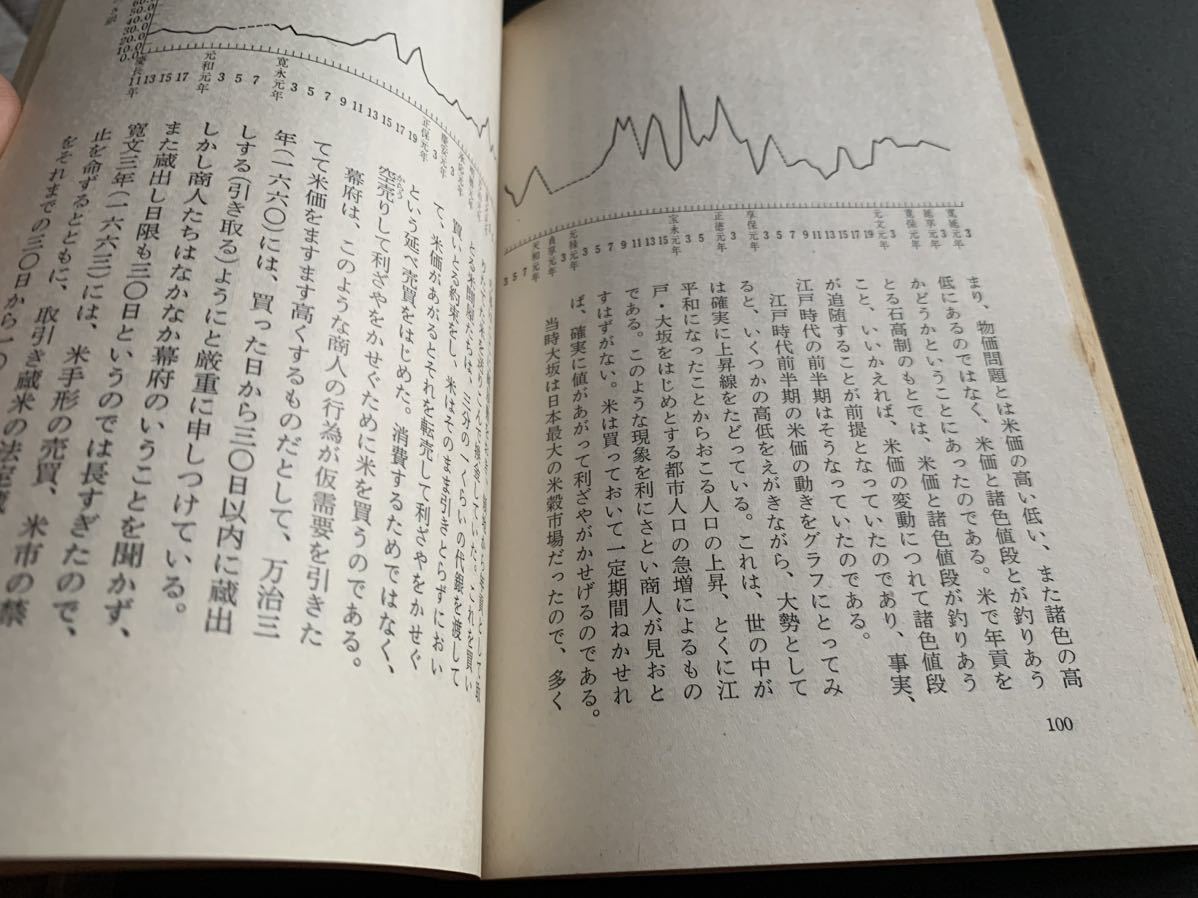 まり、物価問題とは米価の高い低い、また諸色の高
低にあるのではなく、米価と諸色値段とが釣りあう
かどうかということにあったのである。米で年貢を
とる石高制のもとでは、米価と諸色値段が釣りあう
こと、いいかえれば、米価の変動につれて諸色値段
が追随することが前提となっていたのであり、事実、
江戸時代の前半期はそうなっていたのである。
江戸時代前半期の米価の動きをグラフにとってみ
ると、いくつかの高低をえがきながら、大勢として
は確実に上昇線をたどっている。これは、世の中が
平和になったことからおこる人口の上昇、とくに江
戸・大坂をはじめとする都市人口の急増によるもの
である。このような現象を利にさとい商人が見おと
すはずがない。米は買っておいて一定期間ねかせれ
ば、確実に値があがって利ざやがかせげるのである。
当時大坂は日本最大の米穀市場だったので、多く
100
3 5 7 天和元年 3 貞享元年 3 元禄元年 3 5 7 9 11 13 15 宝永元年 3 5 正徳元年 3 享保元年 3 5 7 9 11 13 15 17 19 元文元年 3 寛保元年 3 延享元年 3 寛延元年 3
50.0
40.0
30.0
20.0
10.0
0.0
慶長11年 13 15 17 元和元年 3 5 7 寛永元年 3 5 7 9 11 13 15 17 19 正保元年 3 慶安元年 3
とる米問屋たちは、三分の一くらいの代銀を渡して
買いとる約束をし、米はそのまま引きとらずにおい
て、米価があがるとそれを転売して利ざやをかせぐ
という延べ売買をはじめた。消費するためではなく、
空売りして利ざやをかせぐために米を買うのである。
からうり
幕府は、このような商人の行為が仮需要を引きた
てて米価をますます高くするものだとして、万治三
年(一六六〇)には、買った日から三〇日以内に蔵出
しする(引き取る)ようにと厳重に申しつけている。
しかし商人たちはなかなか幕府のいうことを聞かず、
また蔵出し日限も三〇日というのでは長すぎたので、
寛文三年(一六六三)には、米手形の売買、米市の禁
止を命ずるとともに、取引き蔵米の法定蔵
をそれまでの三〇日から一〇